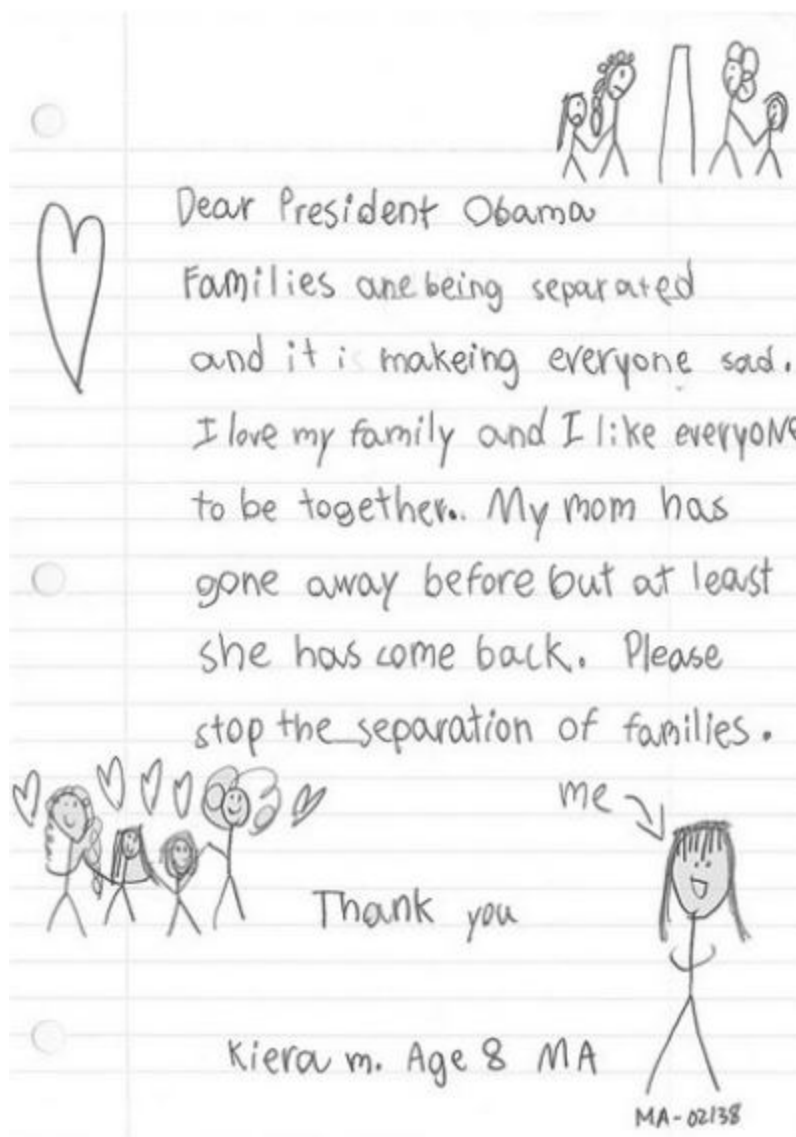 Dear President Obama
Families are being separated
and it is makeing everyone sad.
I love my family and I like everyone
to be together.. My mom has
gone away before but at least
she has come back. Please
stop the separation of families.
me
Thank you
Kiera m. Age 8 MA
MA-02138